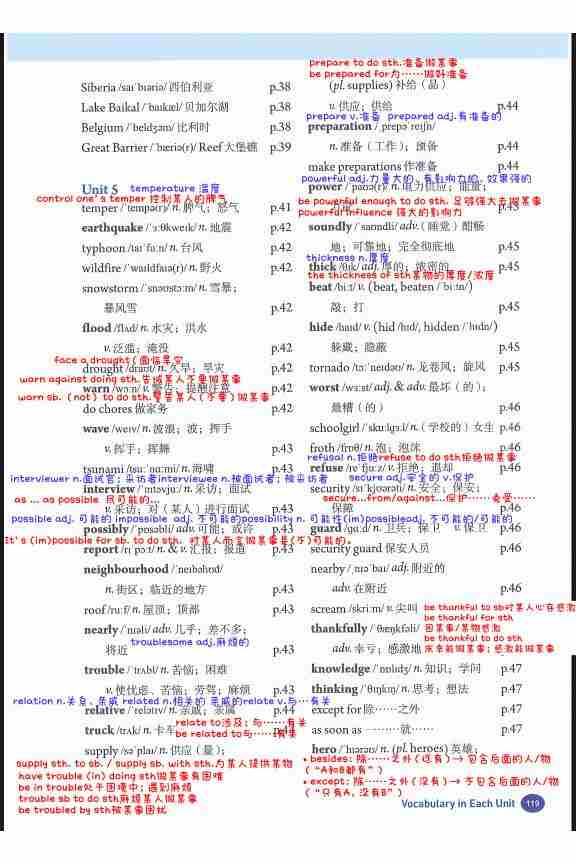 prepare to do sth.准备做某事
be prepared for为……做好准备
Siberia /saɪˈbɪəriə/ 西伯利亚 p.38
Lake Baikal /ˈbaɪkæl/ 贝加尔湖 p.38
Belgium /ˈbeldʒəm/ 比利时 p.38
Great Barrier /ˈbæriə(r)/ Reef 大堡礁 p.39
Unit 5
temperature 温度
control one's temper 控制某人的脾气
temper /ˈtempə(r)/ n. 脾气；怒气 p.41
earthquake /ˈɜːθkweɪk/ n. 地震 p.42
typhoon /taɪˈfuːn/ n. 台风 p.42
wildfire /ˈwaɪldfaɪə(r)/ n. 野火 p.42
snowstorm /ˈsnəʊstɔːm/ n. 雪暴；
暴风雪 p.42
flood /flʌd/ n. 水灾；洪水
v. 泛滥；淹没 p.42
face a drought(面临旱灾
drought /draʊt/ n. 久旱；旱灾 p.42
warn against doing sth.告诫某人不要做某事
warn /wɔːn/ v. 警告；提醒注意 p.42
warn sb.（not）to do sth.警告某人(不要)做某事
do chores 做家务 p.42
wave /weɪv/ n. 波浪；波；挥手
v. 挥手；挥舞 p.43
tsunami /tsuːˈnɑːmi/ n. 海啸 p.43
interviewer n.面试官；采访者interviewee n.被面试者；被采访者
interview /ˈɪntəvjuː/ n. 采访；面试
as ... as possible 尽可能的...
v. 采访；对（某人）进行面试 p.43
possible adj.可能的 impossible adj.不可能的possibility n.可能性(im)possibleadj.不可能的/可能的
possibly /ˈpɒsəbli/ adv. 可能；或许 p.43
It's (im)possible for sb. to do sth. 对某人而言做某事是(不)可能的。
report /rɪˈpɔːt/ n. & v. 汇报；报道 p.43
neighbourhood /ˈneɪbəhʊd/
n. 街区；临近的地方 p.43
roof /ruːf/ n. 屋顶；顶部 p.43
nearly /ˈnɪəli/ adv. 几乎；差不多；
troublesome adj.麻烦的
将近 p.43
trouble /ˈtrʌbl/ n. 苦恼；困难
v. 使忧虑、苦恼；劳驾；麻烦 p.43
relation n.关系、亲戚 related n.相关的 亲戚的relate v.与…有关
relative /ˈrelətɪv/ n. 亲戚；亲属 p.44
relate to涉及；与……有关
truck /trʌk/ n. 卡车 p.44
be related to与……有关
supply /səˈplaɪ/ n. 供应（量）；
supply sth. to sb. / supply sb. with sth.为某人提供某物
have trouble (in) doing sth做某事有困难
be in trouble处于困境中；遇到麻烦
trouble sb to do sth麻烦某人做某事
be troubled by sth被某事困扰
(pl. supplies) 补给（品）
v. 供应；供给 p.44
prepare v.准备 prepared adj.有准备的
preparation /ˌprepəˈreɪʃn/
n. 准备（工作）；预备 p.44
make preparations 作准备 p.44
powerful adj.力量大的、有影响力的、效果强的
power /ˈpaʊə(r)/ n. 电力供应；能量；
be powerful enough to do sth. 足够强大去做某事
p.45
powerful influence 强大的影响力
soundly /ˈsaʊndli/ adv.（睡觉）酣畅
地；可靠地；完全彻底地 p.45
thickness n.厚度
thick /θɪk/ adj. 厚的；浓密的 p.45
the thickness of sth某物的厚度/浓度
beat /biːt/ v. (beat, beaten /ˈbiːtn/)
敲；打 p.45
hide /haɪd/ v. (hid /hɪd/, hidden /ˈhɪdn/)
躲藏；隐蔽 p.45
tornado /tɔːˈneɪdəʊ/ n. 龙卷风；旋风 p.45
worst /wɜːst/ adj. & adv. 最坏（的）；
最糟（的） p.46
schoolgirl /ˈskuːlɡɜːl/ n.（学校的）女生 p.46
froth /frɒθ/ n. 泡；泡沫 p.46
refusal n.拒绝refuse to do sth拒绝做某事
refuse /rɪˈfjuːz/ v. 拒绝；退却 p.46
secure adj.安全的 v.保护
security /sɪˈkjʊərəti/ n. 安全；保安；
secure...from/against...保护……免受……
保障 p.46
guard /ɡɑːd/ n. 卫兵；保卫 v. 保卫 p.46
security guard 保安人员 p.46
nearby /ˌnɪəˈbaɪ/ adj. 附近的
adv. 在附近 p.46
scream /skriːm/ v. 尖叫
be thankful to sb对某人心存感激
be thankful for sth
thankfully /ˈθæŋkfəli/
因某事/某物感激
be thankful to do sth
adv. 幸亏；感激地
庆幸能做某事；感激能做某事
knowledge /ˈnɒlɪdʒ/ n. 知识；学问 p.47
thinking /ˈθɪŋkɪŋ/ n. 思考；想法 p.47
except for 除……之外 p.47
as soon as 一……就…… p.47
hero /ˈhɪərəʊ/ n. (pl. heroes) 英雄；
• besides: 除……之外(还有)→ 包含后面的人/物
（“A和B都有”）
• except: 除……之外(没有)→ 不包含后面的人/物
（“只有A，没有B”）
Vocabulary in Each Unit 119